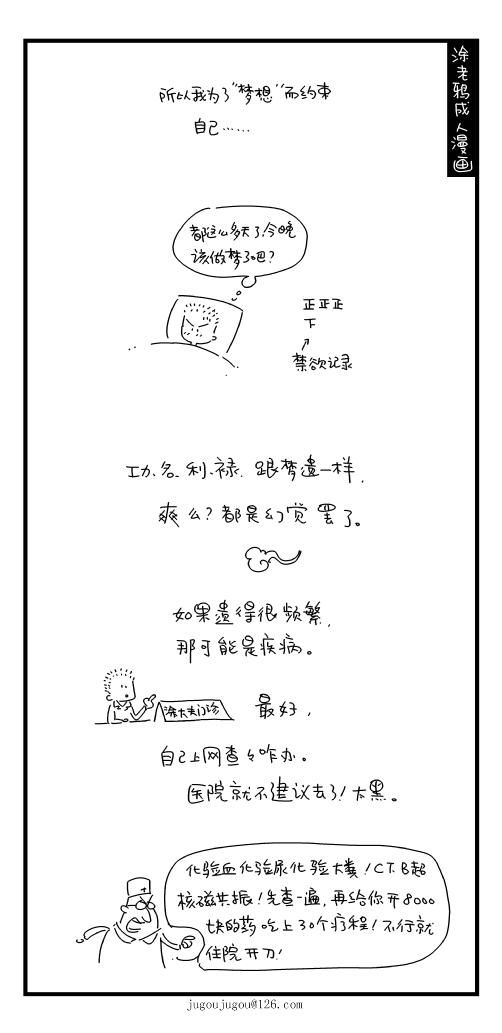 涂老鸦成人漫画
所以我为了“梦想”而约束
自己……
都这么多天了.今晚
该做梦了吧?
正正正
下
禁欲记录
功、名、利、禄.跟梦遗一样,
爽么?都是幻觉罢了。
如果遗得很频繁,
那可能是疾病。
涂大夫门诊
最好,
自己上网查々咋办。
医院就不建议去了!太黑。
化验血化验尿化验大粪!CT.B超
核磁共振!先查一遍,再给你开8000
块的药吃上30个疗程!不行就
住院开刀!
jugoujugou@126.com